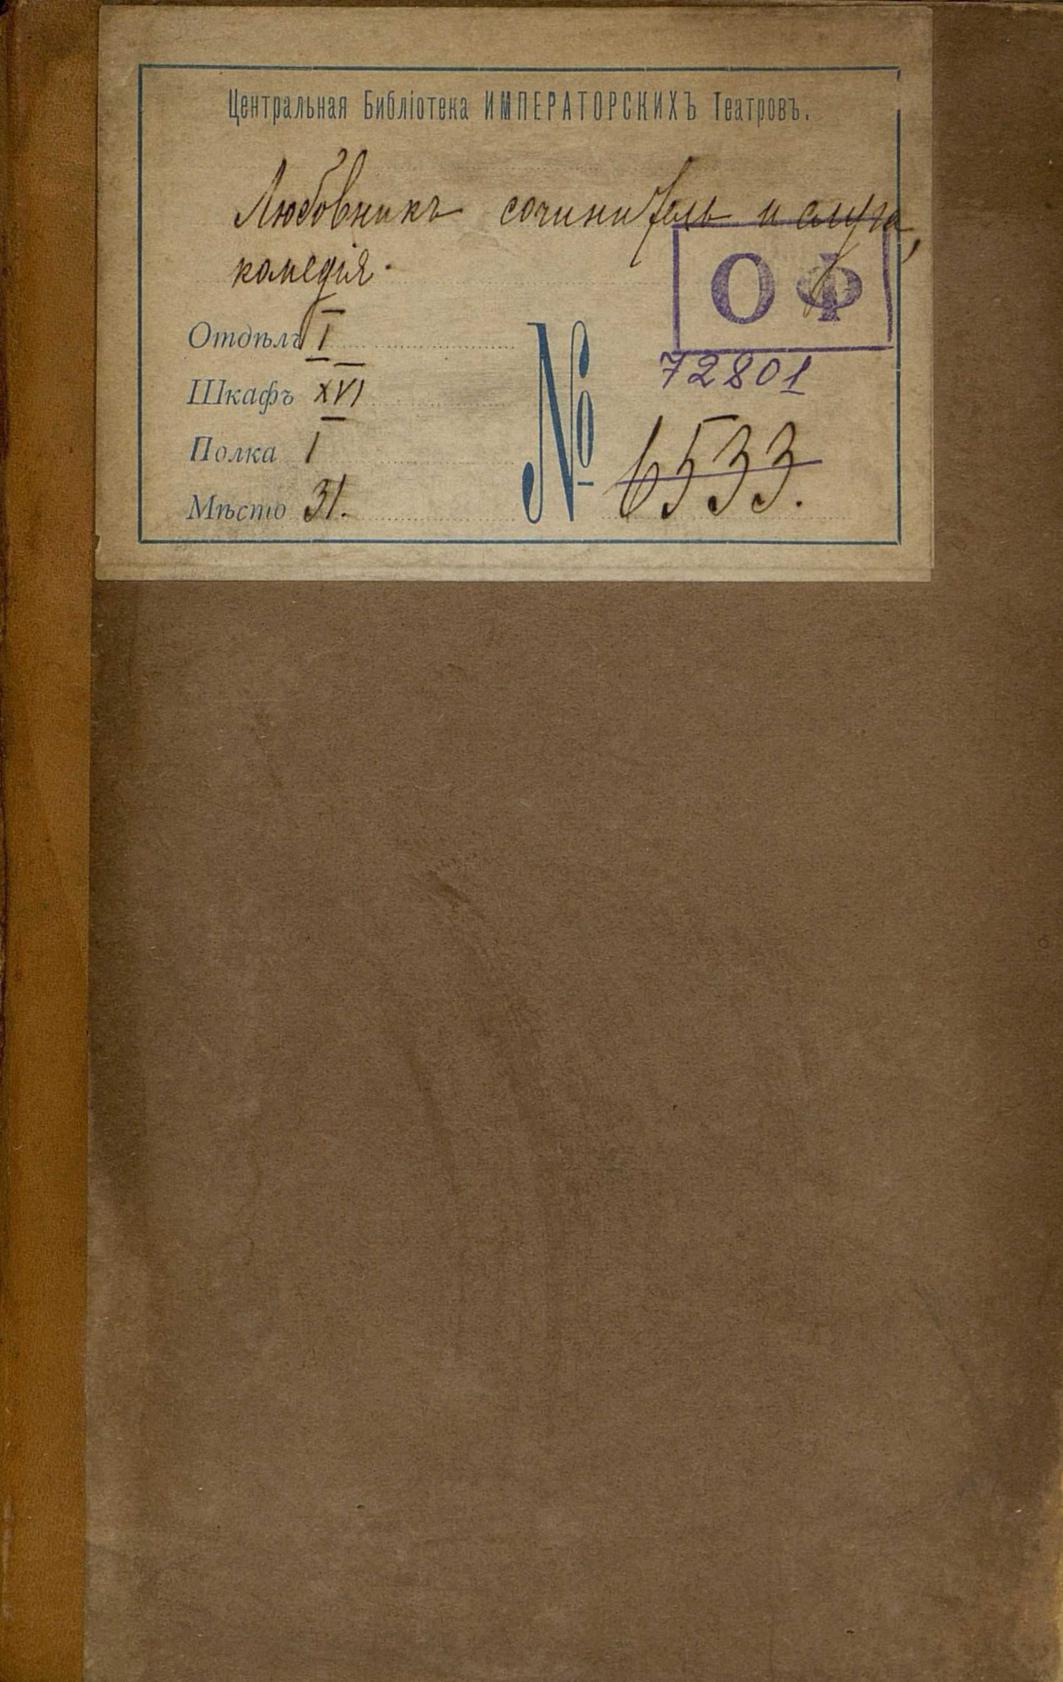 Центральная Библіотека ИМПЕРАТОРСКИХЪ Театровъ.
Любовникъ сочинитель и слуга,
комедія.
ОФ
72801
Отдѣлъ I
Шкафъ XVI
Полка I
Мѣсто 31.
№ 6533.